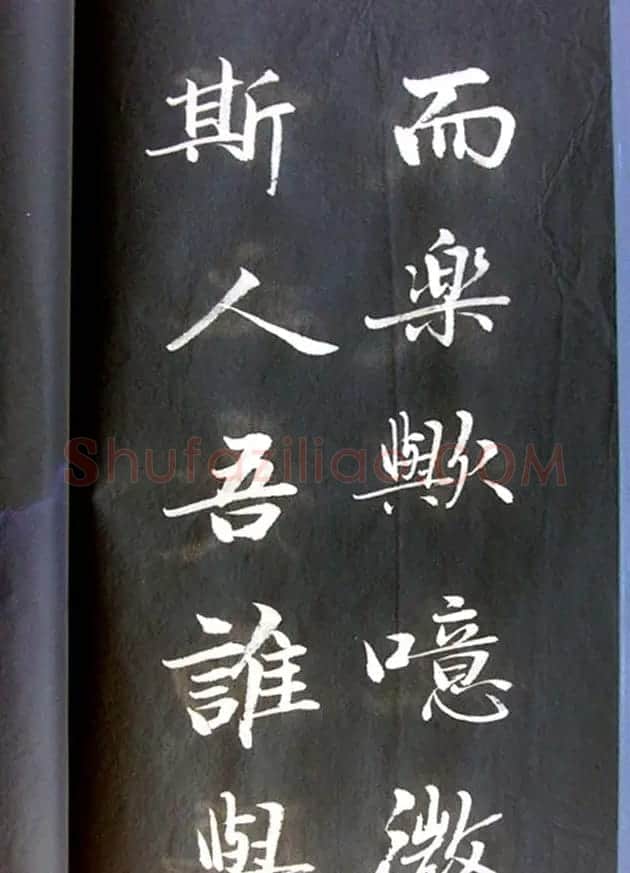 而楽歟噫微
斯人吾誰與
Shufaziliao.COM